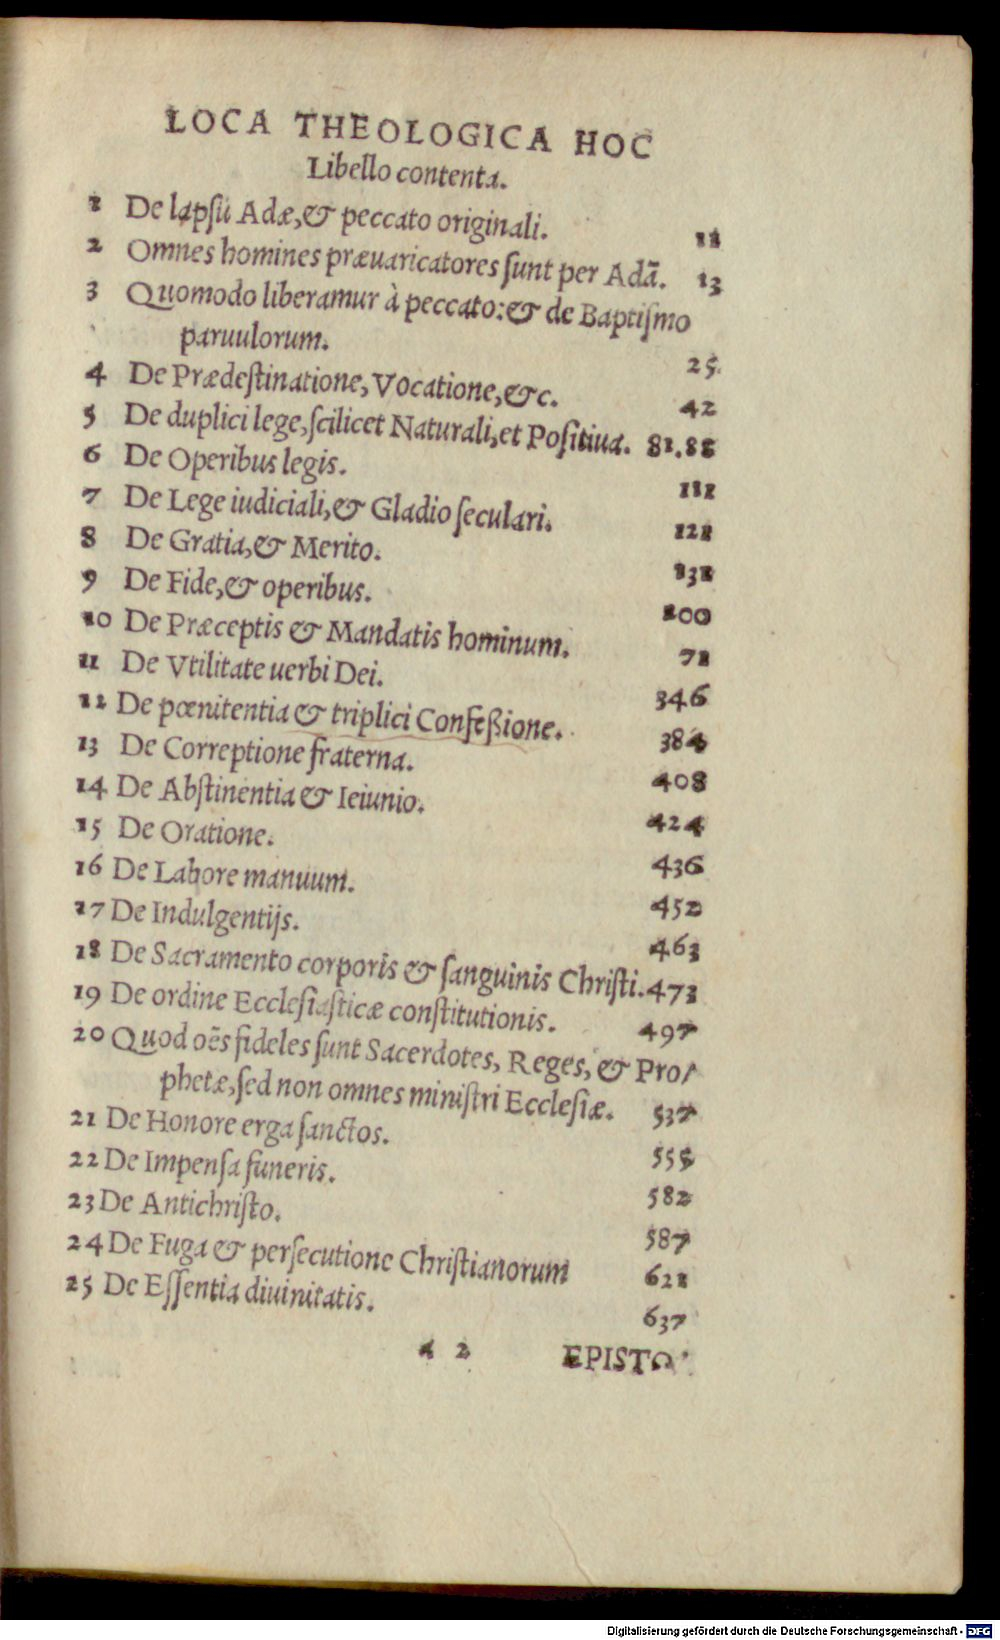 LOCA THEOLOGICA HOC
Libello contenta.
1 De lapsu Adæ, & peccato originali. 11
2 Omnes homines præuaricatores sunt per Adā. 13
3 Quomodo liberamur à peccato: & de Baptismo
paruulorum. 25
4 De Prædestinatione, Vocatione, &c. 42
5 De duplici lege, scilicet Naturali, et Positiua. 81.88
6 De Operibus legis. 111
7 De Lege iudiciali, & Gladio seculari. 121
8 De Gratia, & Merito. 131
9 De Fide, & operibus. 200
10 De Præceptis & Mandatis hominum. 71
11 De Vtilitate uerbi Dei. 346
12 De pœnitentia & triplici Confeßione. 384
13 De Correptione fraterna. 408
14 De Abstinentia & Ieiunio. 424
15 De Oratione. 436
16 De Labore manuum. 452
17 De Indulgentijs. 463
18 De Sacramento corporis & sanguinis Christi. 473
19 De ordine Ecclesiasticæ constitutionis. 497
20 Quod oēs fideles sunt Sacerdotes, Reges, & Pro/
phetæ, sed non omnes ministri Ecclesiæ. 537
21 De Honore erga sanctos. 555
22 De Impensa funeris. 582
23 De Antichristo. 587
24 De Fuga & persecutione Christianorum 621
25 De Essentia diuinitatis. 637
A 2 EPISTO
Digitalisierung gefördert durch die Deutsche Forschungsgemeinschaft - DFG